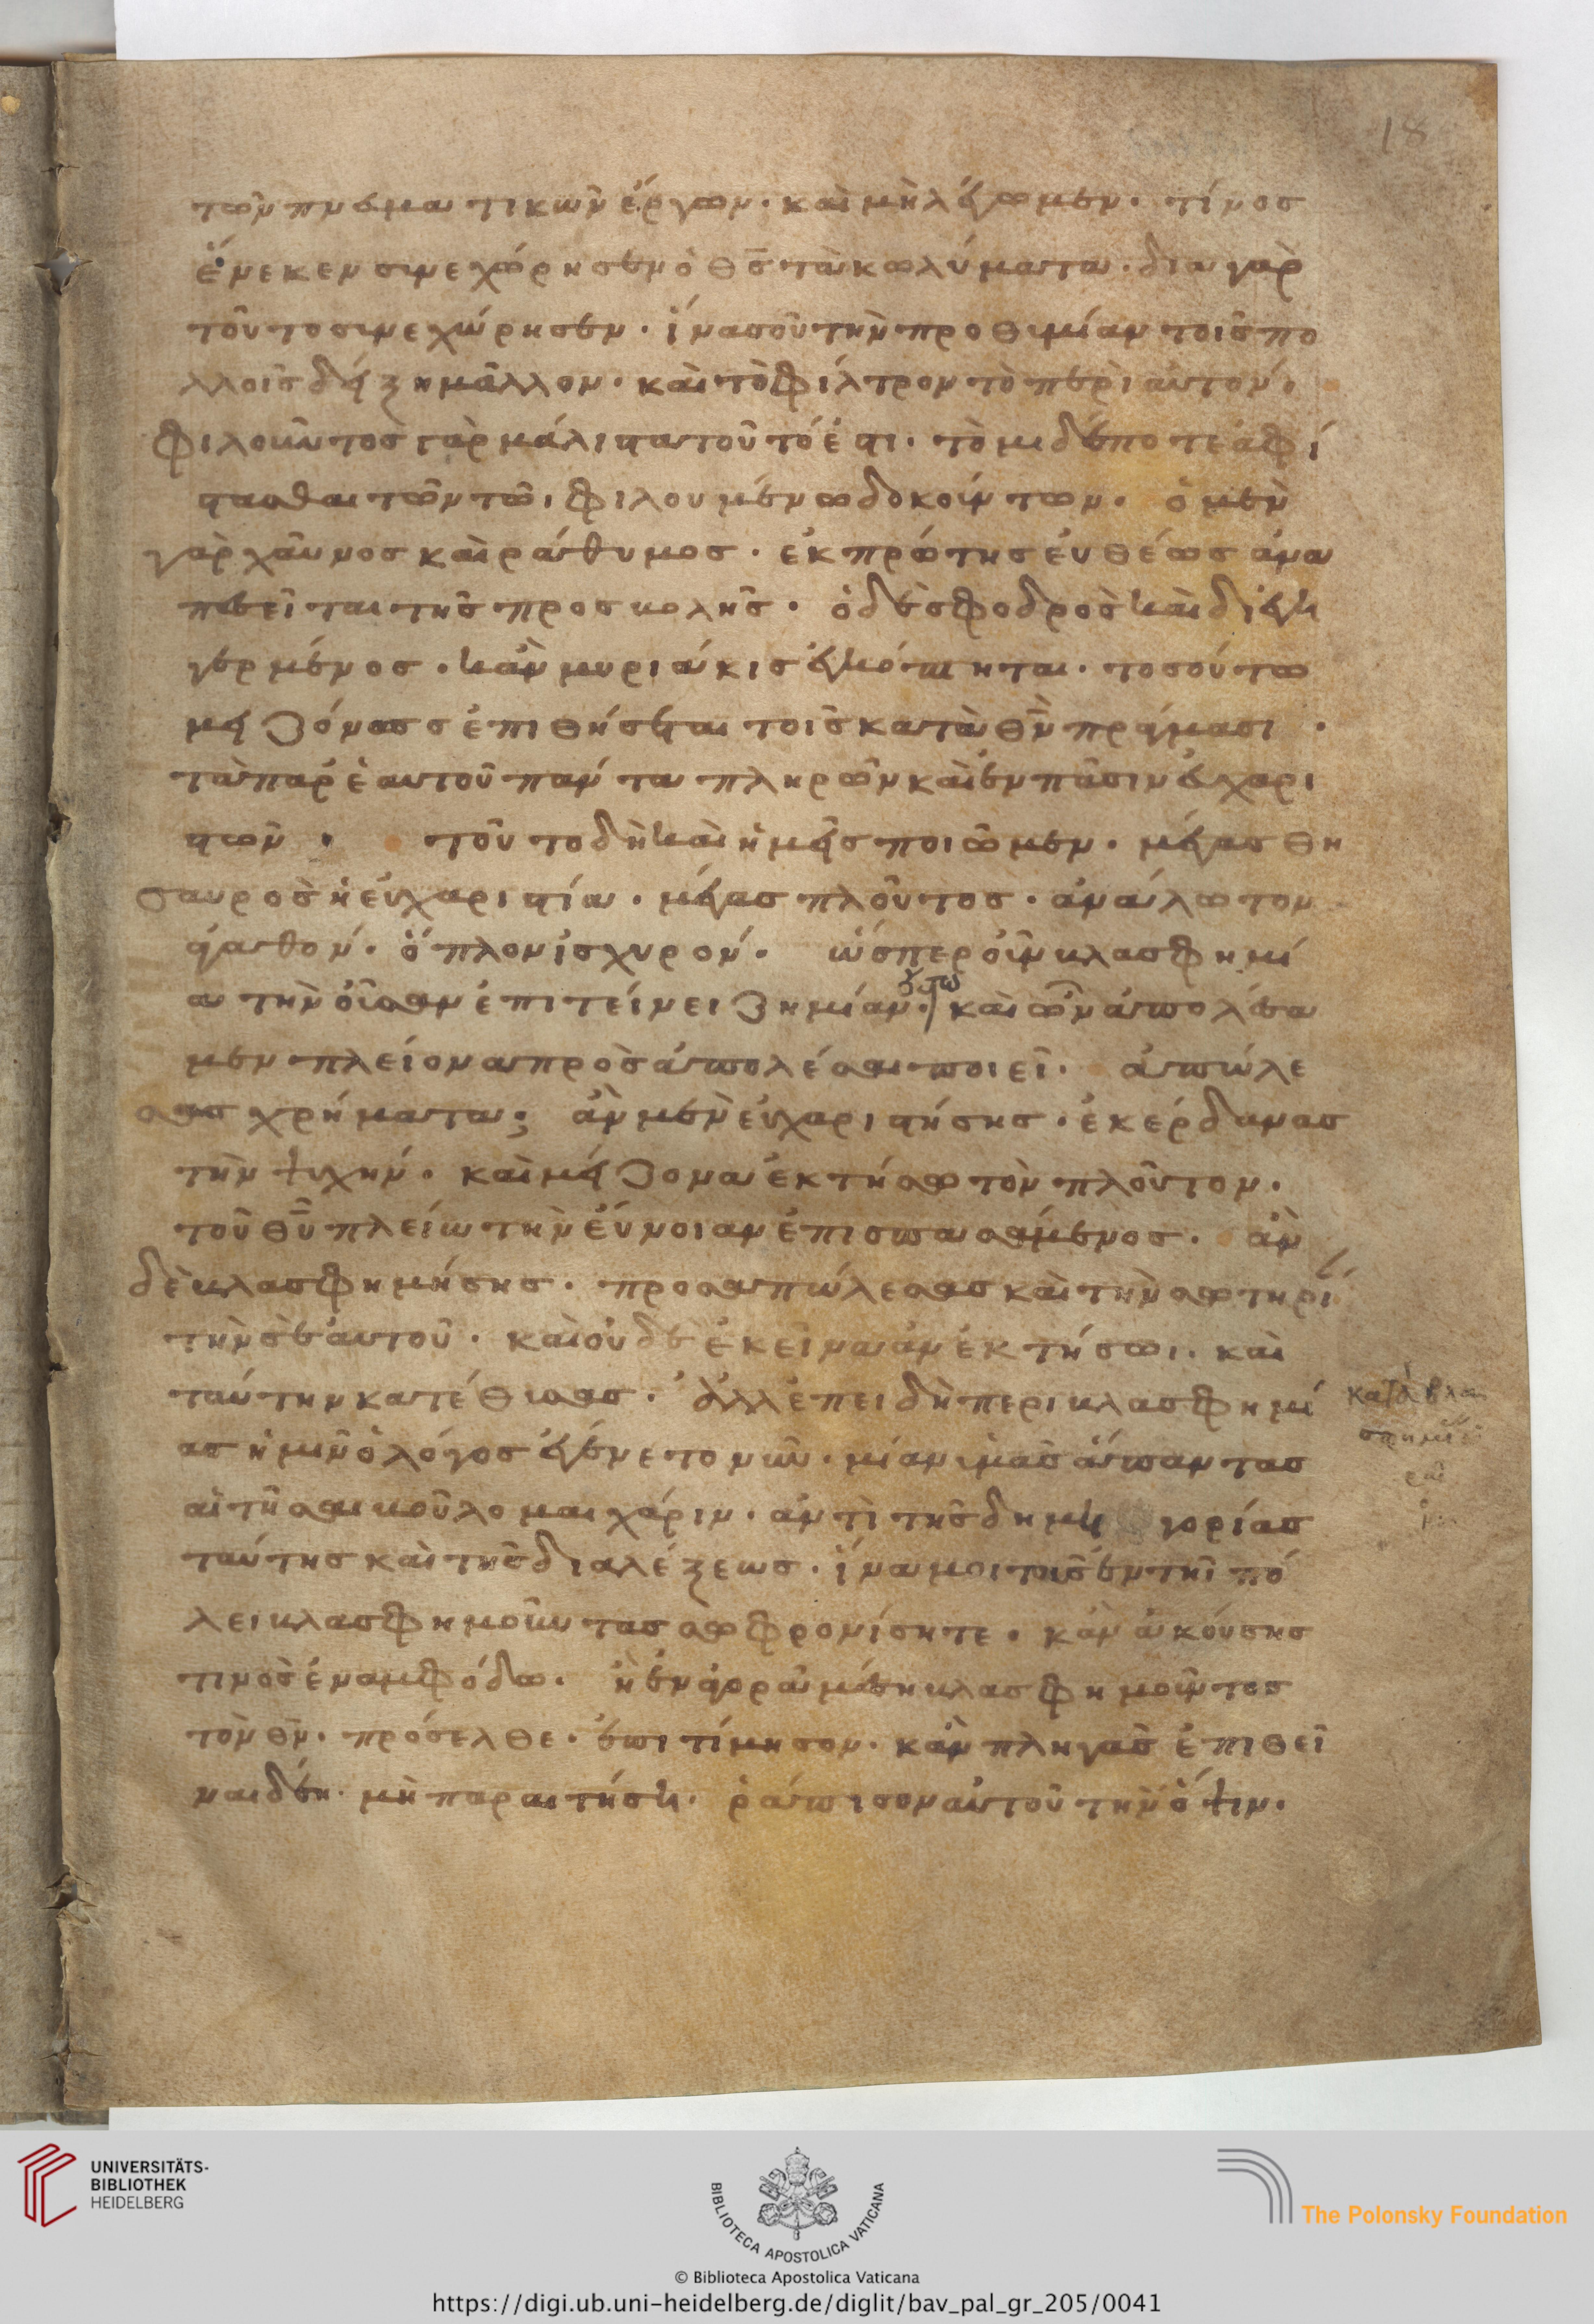 18
τῶν πνευματικῶν ἔργων· καὶ μὴ λέγωμεν· τίνος
ἕνεκεν συνεχώρησεν ὁ θς̅ τὰ κωλύματα· δια γὰρ
τοῦτο συνεχώρησεν· ἵνα σοῦ τὴν προθυμίαν τοῖς πο
λλοῖς δείξη μᾶλλον· καὶ τὸ φίλτρον τὸ περὶ αὐτόν·
φιλοῦντος γὰρ μάλιστα τοῦτό ἐστι· τὸ μιδέποτε ἀφί
στασθαι τῶν τῶι φιλουμένω δοκούντων· ὁ μὲν
γὰρ χαῦνος καὶ ράθυμος· ἐκ πρώτης ἐυθέως ἀνα
πιεῖται τῆς προσβολῆς· ὁ δὲ σφοδρὸς καὶ διεγη
γερμένος· κἀν μυριάκις ἐγκόπτηται· τοσούτω
μειζόνως ἐπιθήσεται τοῖς κατὰ θν̅ πράγμασι·
τὰ παρ' ἑαυτοῦ πάντα πληρῶν καὶ ἐν πᾶσιν εὐχαρι
στῶν· τοῦτο δὴ καὶ ἡμεῖς ποιῶμεν· μέγας θη
σαυρὸς ἡ εὐχαριστία· μέγας πλοῦτος· ἀνάλωτον
ἀγαθόν· ὅπλον ἰσχυρόν· ὥσπερ οὖν βλασφημί
α τὴν οὖσαν ἐπιτείνει ζημίαν· οὕτω καὶ ὧν ἀπολέσα
μεν πλείονα προσἀπολέσαι ποιεῖ· ἀπώλε
σας χρήματα; ἀν μὲν εὐχαριστήσης· ἐκέρδανας
τὴν ψυχήν· καὶ μείζονα ἐκτήσω τὸν πλοῦτον·
τοῦ θυ̅ πλείω τὴν εὔνοιαν ἐπισπασάμενος· ἀν
δὲ βλασφημήσης· προσαπώλεσας καὶ τὴν σωτηρί
τὴν σεαυτοῦ· καὶ οὐδὲ ἐκεῖνα ἀνεκτήσω· καὶ
ταύτην κατέθυσας· ἀλλ' ἐπειδὴ περι βλασφημί
ας ἡμῖν ὁ λόγος ἐγένετο νῦν· μίαν ὑμᾶς ἅπαντας
αἰτῆσαι βούλομαι χάριν· ἀντὶ τῆς δημη γορίας
ταύτης καὶ τῆς διαλέξεως· ἵνα μοι τοὺς ἐν τῆι πό
λει βλασφημοῦντας σωφρονίσητε· κἀν ἀκούσης
τινὸς ἐν αμφόδω· ἢ ἐν ἀγορᾶ μέση βλασφημοῦντος
τὸν θν̅· πρόσελθε· ἐπιτίμησον· κἀν πληγὰς ἐπιθεῖ
ναι δέη· μὴ παραιτήση· ῥάπισον αὐτοῦ τὴν ὄψιν·
κατὰ βλα
σφημί
UNIVERSITÄTS-
BIBLIOTHEK
HEIDELBERG
BIBLIOTECA APOSTOLICA VATICANA
The Polonsky Foundation
© Biblioteca Apostolica Vaticana
https://digi.ub.uni-heidelberg.de/diglit/bav_pal_gr_205/0041